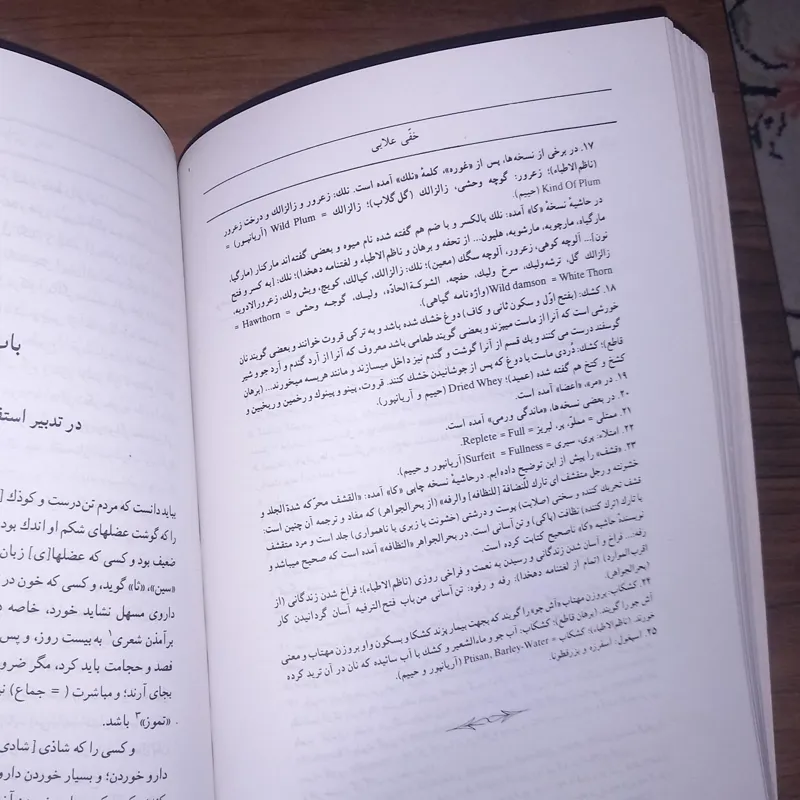 خَفّی علایی
۱۷. در برخی از نسخه‌ها، پس از «غوره»، کلمهٔ «نلك» آمده است. نلك: زعرور و زالزالك و درخت زعرور
(ناظم‌الاطباء)؛ زعرور: گوجه وحشی، زالزالك (گل گلاب)؛ زالزالك = Wild Plum (آریانپور) =
Kind Of Plum (حییم).
در حاشیهٔ نسخهٔ «کا» آمده: نلك بالکسر و با ضم هم گفته شده نام میوه و بعضی گفته‌اند مارکنار (مارگیا،
مارگیاه، مارچوبه، مارشوبه، هلیون... از تحفه و برهان و ناظم‌الاطباء و لغتنامه دهخدا)؛ نلك: [به کسر و فتح
نون]... آلوچه کوهی، زعرور، آلوچه سگك (معین)؛ نلك: زالزالك، کیالك، کویچ، ویش ولك، زعرورالادویه،
زالزالك گل، ترشه‌ولیك، سرخ ولیك، حفچه، الشوکة‌الحادّه، ولیك، گوجه وحشی = Hawthorn =
Wild damson = White Thorn (واژه نامه گیاهی).
۱۸. کشك: (بفتح اوّل و سکون ثانی و کاف) دوغ خشك شده باشد و به ترکی قروت خوانند و بعضی گویند نان
خورشی است که آنرا از ماست میپزند و بعضی گویند طعامی باشد معروف که آنرا از آرد گندم و آرد جو و شیر
گوسفند درست می کنند و یك قسم از آنرا گوشت و گندم نیز داخل میسازند و مانند هریسه میخورند... (برهان
قاطع)؛ کشك: دُردی ماست یا دوغ که پس از جوشانیدن خشك کنند. قروت، پینو و پینوك و رخمین و ریخبین و
کشخ و کتخ هم گفته شده (عمید)؛ Dried Whey (حییم و آریانپور).
۱۹. در «مر»، «اعضا» آمده است.
۲۰. در بعضی نسخه‌ها، «ماندگی و رمی» آمده است.
۲۱. ممتلی = مملوّ، پر، لبریز = Replete = Full.
۲۲. امتلاء: پری، سیری = Surfeit = Fullness (آریانپور و حییم).
۲۳. «قشف» را پیش از این توضیح داده ایم. درحاشیهٔ نسخه چاپی «کا» آمده: «القشف محرّکه شدة الجلد و
خشونته و رجل متقشف ای تارك للنّضافة [للنظافه] والرفه» (از بحرالجواهر) که مفاد و ترجمه آن چنین است:
قشف تحریك کننده و سختی (صلابت) پوست و درشتی (خشونت یا زبری یا ناهمواری) جلد است و مرد متقشف
یا تارك (ترك کننده) نظافت (پاکی) و تن آسانی است. در بحرالجواهر «النظافه» آمده است که صحیح میباشد و
نویسندهٔ حاشیه «کا» ناصحیح کتابت کرده است.
رفه:... فراخ و آسان شدن زندگانی و رسیدن به نعمت و فراخی روزی (ناظم‌الاطباء)؛ فراخ شدن زندگانی (از
اقرب‌الموارد) (تمام از لغتنامه دهخدا): رفه و رفوه: تن‌آسانی من‌باب فتح‌الترفیه آسان گردانیدن کار
(بحرالجواهر).
۲۴. کشکاب: بروزن مهتاب «آش جو» را گویند که بجهت بیمار پزند کشکا و بسکون واو بر وزن مهتاب و معنی
آش جو را گویند. (برهان قاطع)؛ کشکاب: آب جو و ماءالشعیر و کشك با آب سائیده که نان در آن ترید کرده
خورند. (ناظم‌الاطباء)؛ کشکاب = Ptisan, Barley-Water (آریانپور و حییم).
۲۵. اسپغول: اسفرزه و بزرقطونا.
باب
در تدبیر استف
بباید دانست که مردم تن درست و کوذك [
را که گوشت عضلهای شکم او اندك بود
ضعیف بود و کسی که عضلها[ی] زبان
«سین»، «ثا» گوید، و کسی که خون در
داروی مسهل نشاید خورد، خاصه د
برآمذن شعری۱ به بیست روز، و پس
فصد و حجامت باید کرد، مگر ضرو
بجای آرند؛ و مباشرت (= جماع) نی
«تموز»۳ باشد.
و کسی را که شاذی [شادی
دارو خوردن؛ و بسیار خوردن دارو